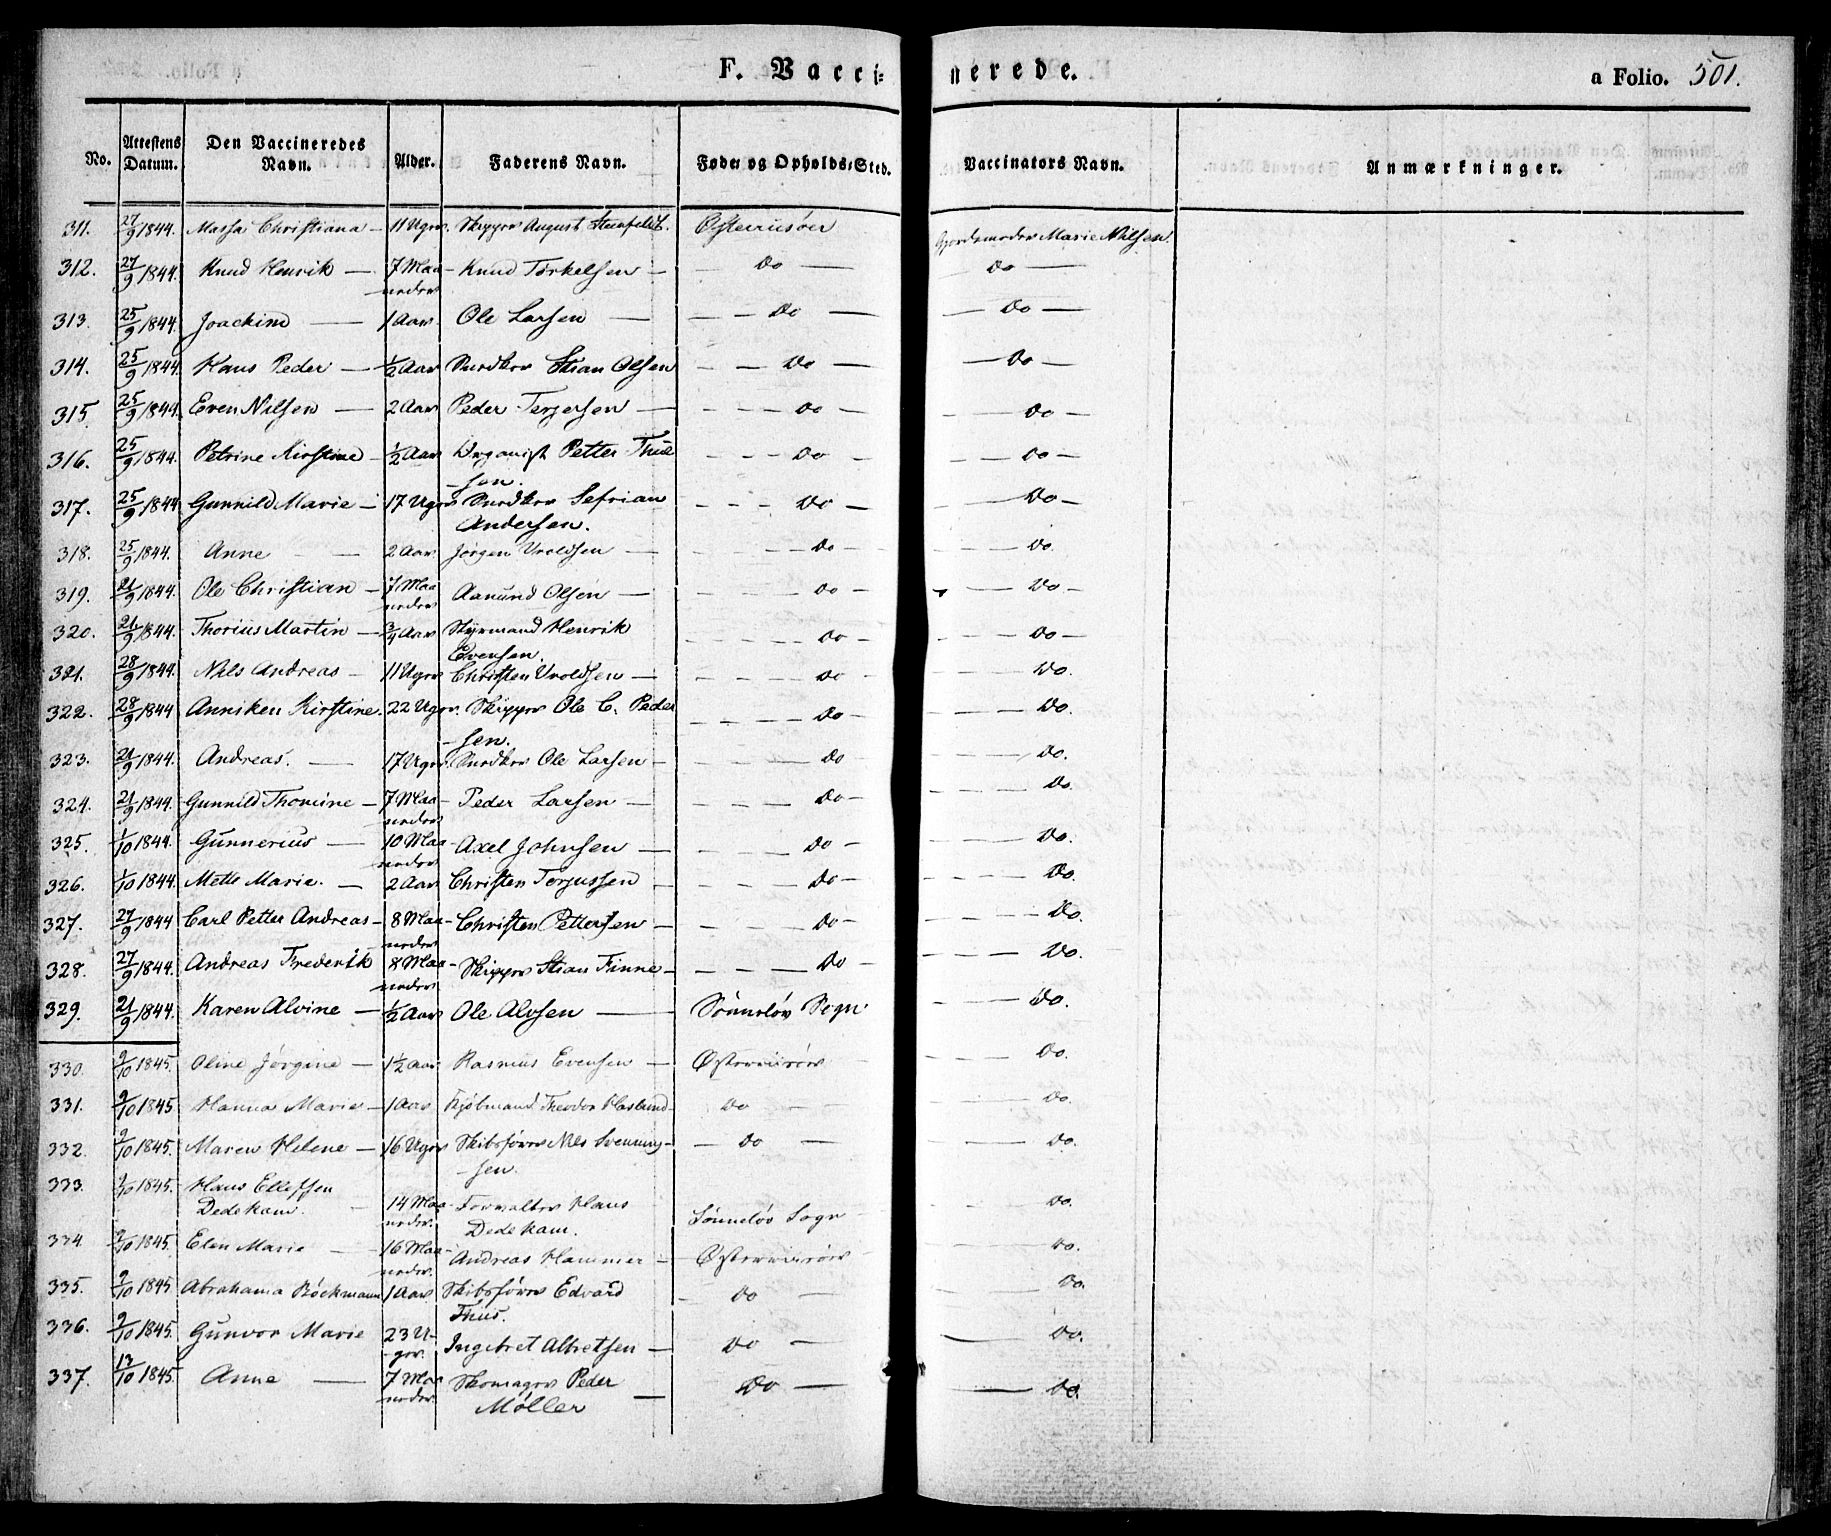 F. Vacci= nerede. a Folio. 501.
No. Attestens Datum. Den Vaccineredes Navn. Alder. Faderens Navn. Føde= og Opholds=Sted. Vaccinators Navn. Anmærkninger.
311. 27/9 1844. Massa Christiana – 11 Uger. Skipper August Østeriisöer Gjordemoder Marie Nilsen.
312. 27/9 1844. Knud Henrik — 7 Maaneder Knud Torkelsen — Do — — Do —
313. 25/9 1844. Joachim — 1 Aar. Ole Larsen — – – Do — — Do —
314. 25/9 1844 Hans Peder — 1/2 Aar Stian Olsen – – Do – — Do —
315. 25/9 1844. Even Nilsen — 2 Aar Peder Terjersen — – – – Do – — Do –
316. 25/9 1844. Petrine Kirstine – 1/2 Aar Petter Thue
sen. – – – Do – — Do –
317. 25/9 1844. Gunnild Marie – 17 Uger Sefrian
Andersen. – – – Do – — Do –
318. 25/9 1844. Anne — 2 Aar Jørgen Vroldsen — – – – Do – — Do.
319. 21/9 1844. Ole Christian – 7 Maaneder Aanund Olsen — – – – Do – — Do –
320. 21/9 1844. Thorius Martin – 3/4 Aar Styrmand Henrik
Evensen. – – – Do – — Do –
321. 28/9 1844. Nils Andreas – 11 Uger Christen Vroldsen — – – – Do – — Do.
322. 28/9 1844 Anniken Kirstine. 22 Uger. Skipper Ole C. Peder
sen. – – – Do – — Do.
323. 21/9 1844. Andreas. — 17 Uger Ole Larsen – – – – Do – — Do.
324. 21/9 1844. Gunnild Thomine – 7 Maaneder Peder Larsen — – – – Do – — Do.
325. 1/10 1844. Gunnerius — 10 Maaneder Axel Johnsen — – – – Do – — Do.
326. 1/10 1844. Mette Marie. — 2 Aar Christen Terjussen – – – – Do – — Do.
327. 27/9 1844 Carl Petter Andreas – 8 Maaneder Christen Pettersen – – – – Do – — Do.
328. 27/9 1844. Andreas Frederik 8 Maaneder Skipper Stian Finne – – – – Do – — Do.
329. 21/9 1844. Karen Alvine – 1/2 Aar Ole Alvsen — Sönneløv Sogn — Do.
330. 9/10 1845. Oline Jørgine – 1 1/2 Aar Rasmus Evensen – Østerriisöer — Do.
331. 9/10 1845 Hanna Marie – 1 Aar Kjöbmand Theodor Haslund – Do — — Do.
332. 9/10 1845. Maren Helene – 16 Uger Skibsfører Nils Svenning-
-sen. – Do — — Do.
333. 9/10 1845. Hans Ellefsen
Dedekam. – 14 Maaneder. Forvalter Hans
Dedekam. Sønneløv Sogn — Do.
334. 9/10 1845. Elen Marie — 16 Maaneder. Andreas Hammer – Østerriisöer — Do.
335. 9/10 1845. Abrahama Böckmann 1 Aar Skibsfører Edvard
Thus. – Do — — Do.
336. 9/10 1845. Gunvor Marie 23 U-
ger. Ingebret Albretsen – Do — — Do.
337. 13/10 1845. Anne — 7 Maaneder Skomager Peder
Møller — Do — — Do.